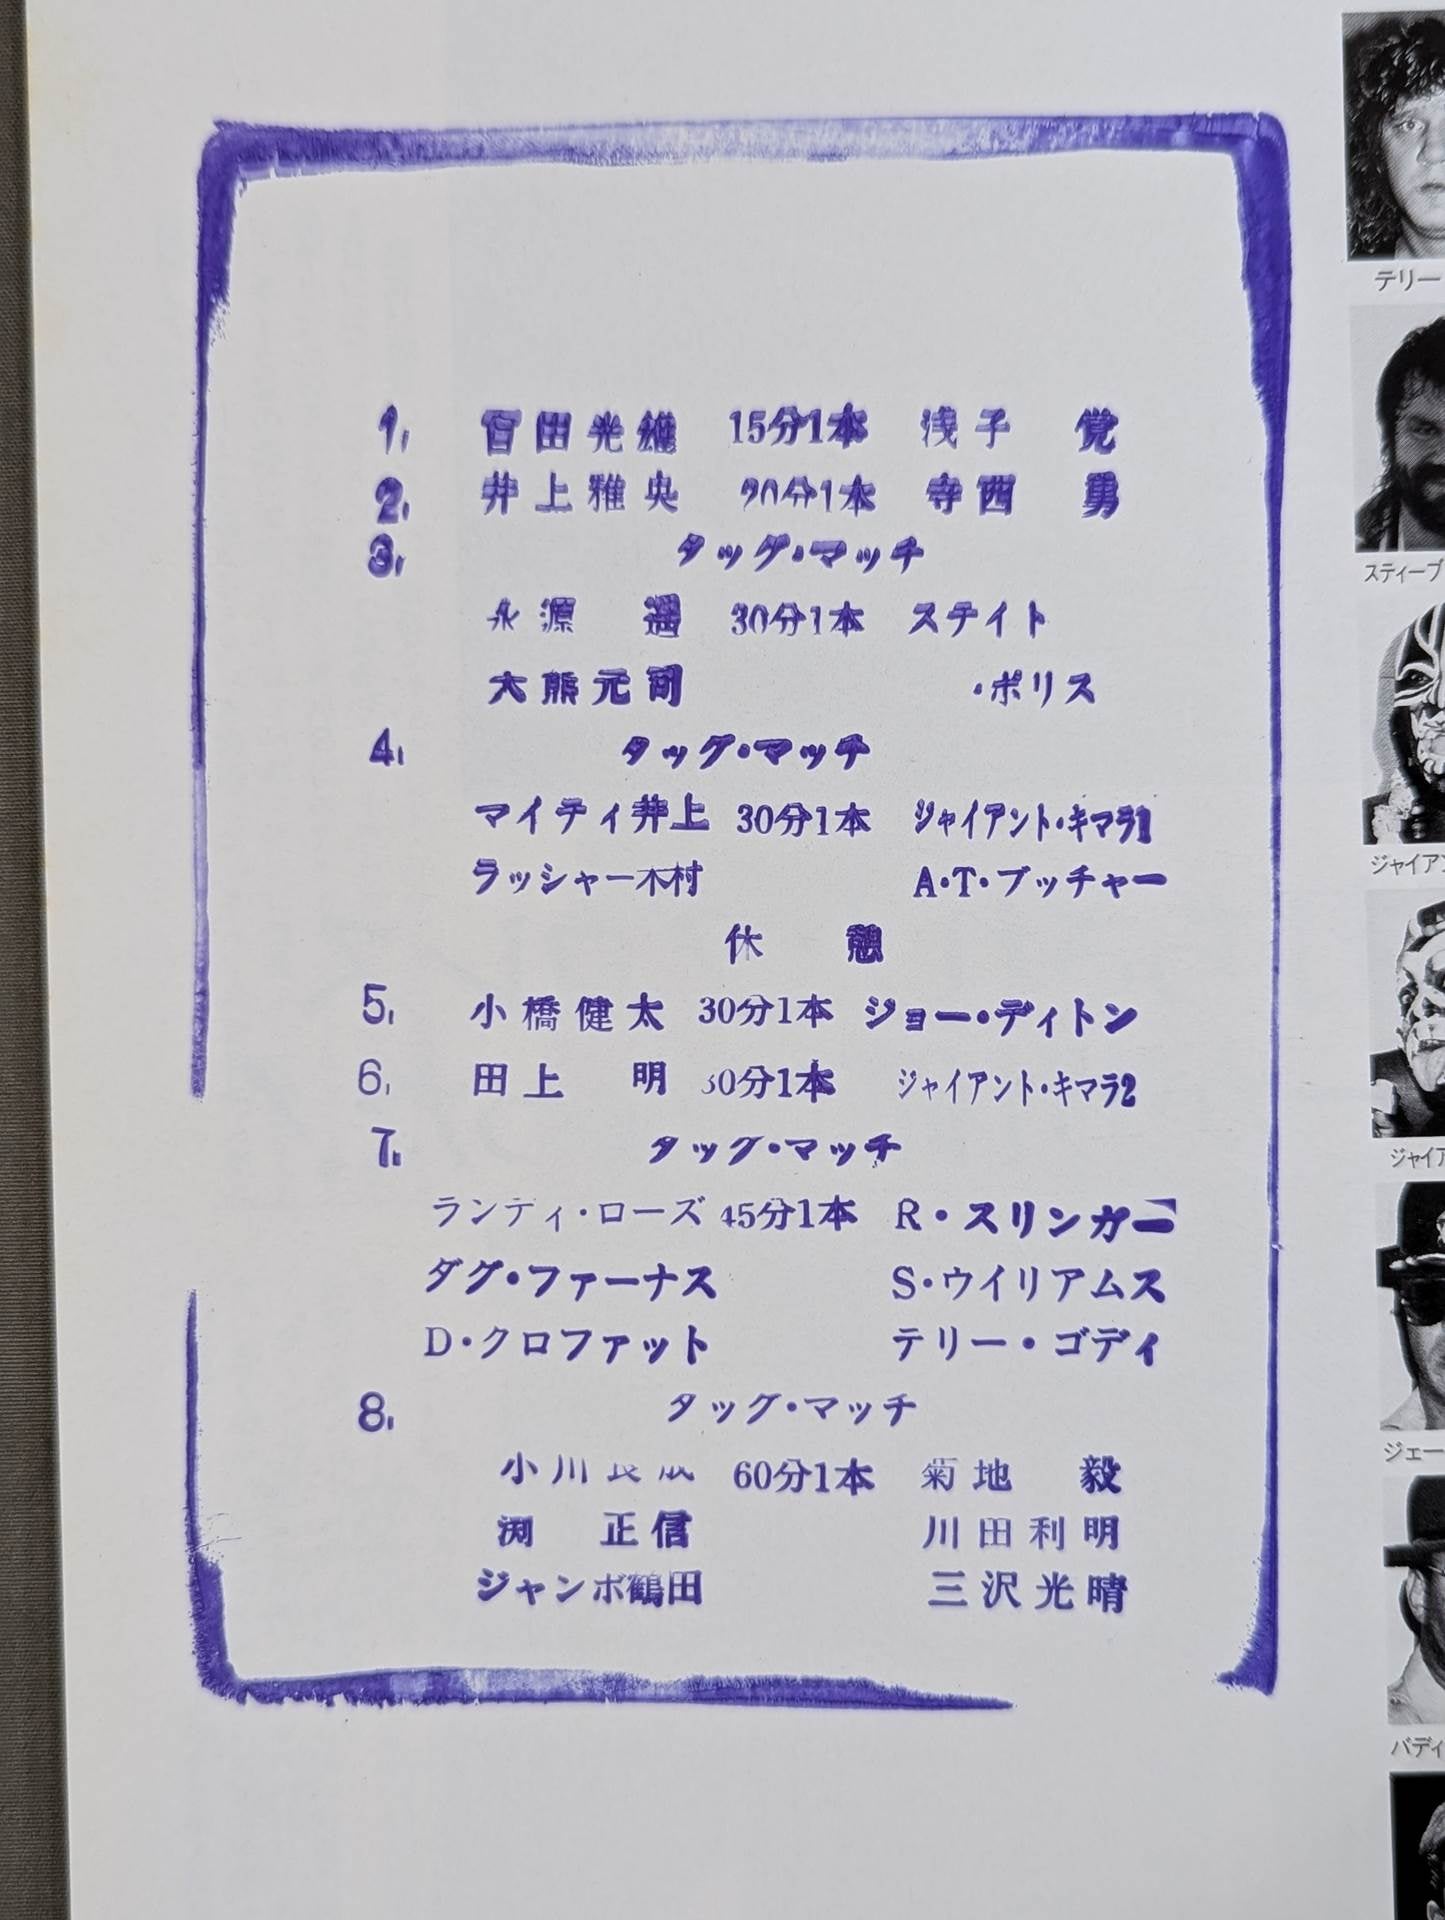 1. 百田光雄 15分1本 浅子 覚
2. 井上雅央 20分1本 寺西 勇
3. タッグ・マッチ
永源 遥 30分1本 ステイト
大熊元司 ・ポリス
4. タッグ・マッチ
マイティ井上 30分1本 ジャイアント・キマラ1
ラッシャー木村 A・T・ブッチャー
休 憩
5. 小橋健太 30分1本 ジョー・ディトン
6. 田上 明 30分1本 ジャイアント・キマラ2
7. タッグ・マッチ
ランディ・ローズ 45分1本 R・スリンガー
ダグ・ファーナス S・ウイリアムス
D・クロファット テリー・ゴディ
8. タッグ・マッチ
小川良成 60分1本 菊地 毅
渕 正信 川田利明
ジャンボ鶴田 三沢光晴
テリー
スティーブ
ジャイア
ジャイア
ジェー
バディ